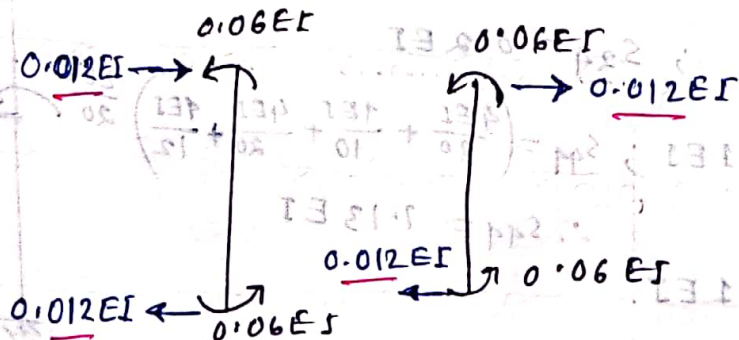 0.06EI
0.06EI
0.012EI
0.012EI
0.012EI
0.06 EI
0.012EI
0.06EI